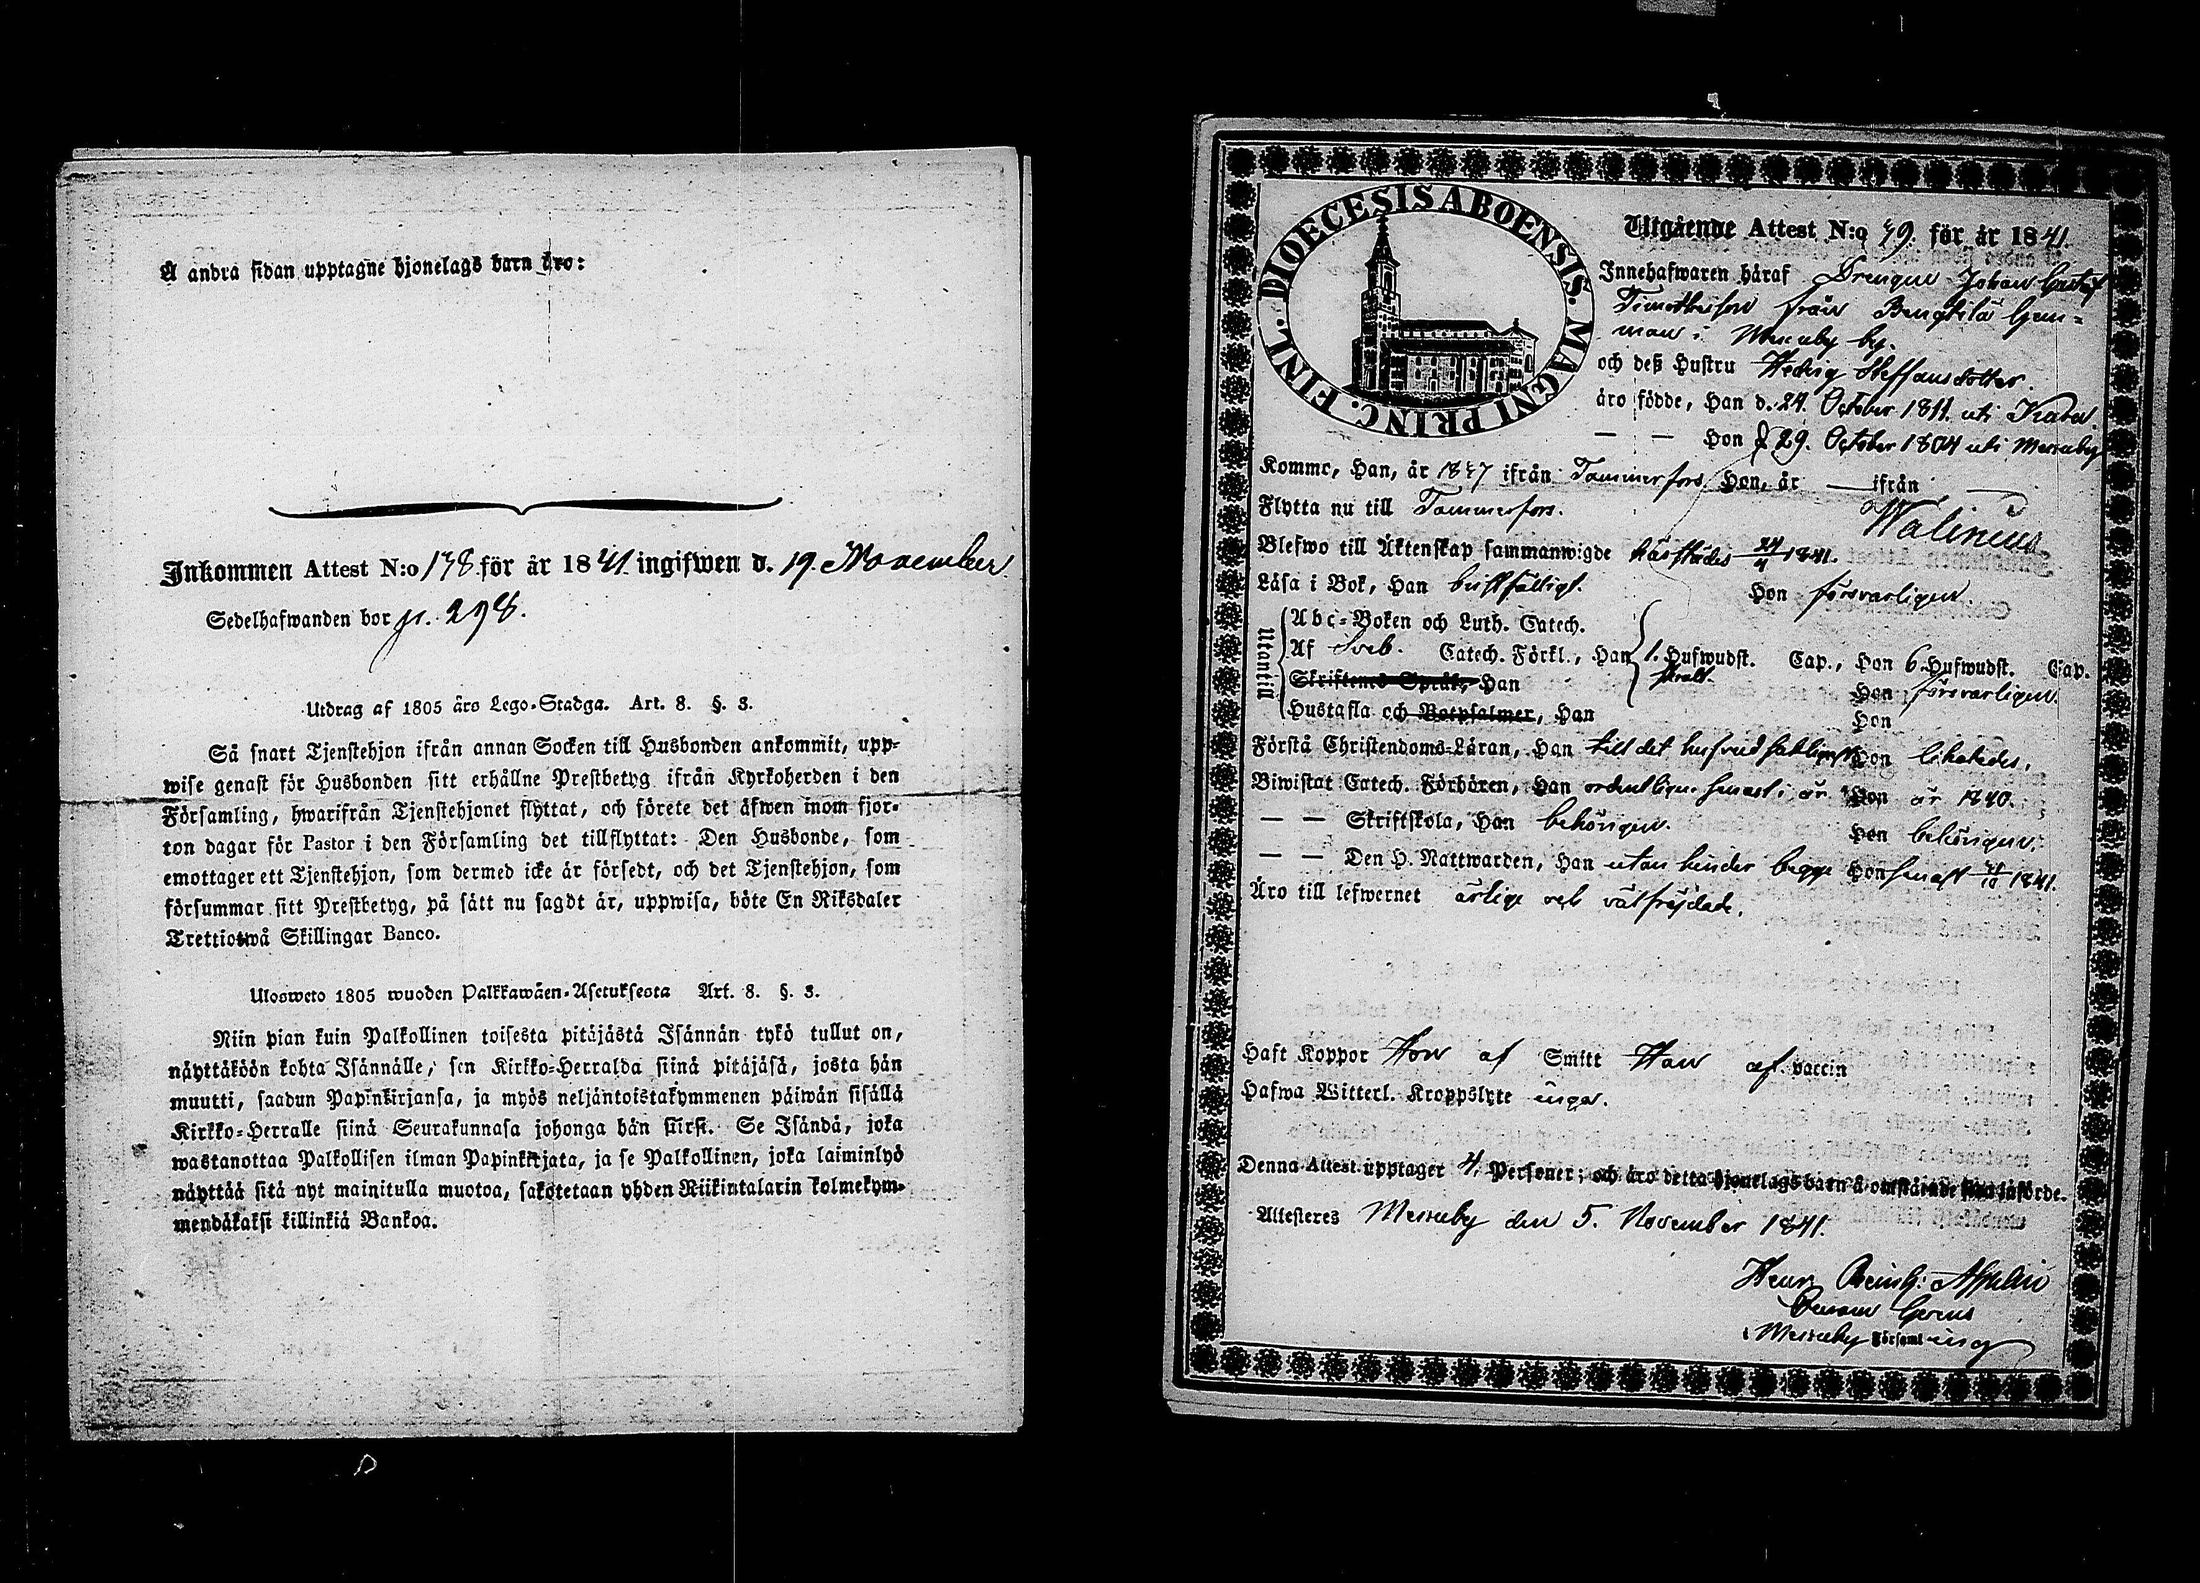 Å andra sidan upptagne hjonelags barn äro:
Inkommen Attest N:o 138 för år 1841 ingifwen d. 19. November.
Sedelhafwanden bor p. 298.
Utdrag af 1805 års Lego-Stadga. Art. 8. §. 3.
Så snart Tjenstehjon ifrån annan Socken till Husbonden ankommit, upp-
wise genast för Husbonden sitt erhållne Prestbetyg ifrån Kyrkoherden i den
Församling, hwarifrån Tjenstehjonet flyttat, och förete det äfwen inom fjor-
ton dagar för Pastor i den Församling det tillflyttat: Den Husbonde, som
emottager ett Tjenstehjon, som dermed icke är försedt, och det Tjenstehjon, som
försummar sitt Prestbetyg, på sätt nu sagdt är, uppwisa, böte En Riksdaler
Trettiotwå Skillingar Banco.
Ulosweto 1805 wuoden Palkkawäen-Asetuksesta Art. 8. §. 3.
Niin pian kuin Palkollinen toisesta pitäjästä Isännän tykö tullut on,
näyttäköön kohta Isännälle, sen Kirkko-Herralda siinä pitäjäsä, josta hän
muutti, saadun Papinkirjansa, ja myös neljäntoistakymmenen päiwän sisällä
Kirkko-Herralle siinä Seurakunnasa johonga hän siirsi. Se Isändä, joka
wastanottaa Palkollisen ilman Papinkirjata, ja se Palkollinen, joka laiminlyö
näyttää sitä nyt mainitulla muotoa, sakotetaan yhden Riikintalarin kolmekym-
mendäkaksi killinkiä Bankoa.
DIOECESIS ABOENSIS. MAGNI PRINC. FINL.
Utgående Attest N:o 49. för år 1841.
Innehafwaren häraf Drengen Johan Gustaf
Timotheusson från Bengtilä Gam-
man i Messuby by.
och deß Hustru Hedvig Steffansdotter.
äro födde, Han d. 24. October 1811 uti
— — Hon d 29. October 1804 uti Messuby
Komne, Han, år 1837 ifrån Tammerfors, Hon, år — ifrån —
Flytta nu till Tammerfors.
Walinius
Blefwo till Äktenskap sammanwigde härstädes 24/4 1841.
Läsa i Bok, Han bristfälligt. Hon försvarligen
Utantill
Abc-Boken och Luth. Catech.
Af Sveb. Catech. Förkl., Han 1. Hufwudst. Cap., Hon 6 Hufwudst. Cap.
Skriftenes Språk, Han Hon försvarligen.
Hustafla och Botpsalmer, Han Hon
Förstå Christendoms-Läran, Han till det hufvudsakligaste Hon likaledes.
Biwistat Catech. Förhören, Han ordentligen senast i år Hon år 1840.
— — Skriftskola, Han behörigen. Hon behörigen.
— — Den H. Nattwarden, Han utan hinder begge Hon senast 1841.
Äro till lefwernet ärlige och välfrejdade.
Haft Koppor Hon af Smitt Han af vaccin
Hafwa Witterl. Kroppslyte inga.
Denna Attest upptager 4 Personer; och äro detta hjonelags barn å omstående sida införde.
Attesteres Messuby den 5. November 1841.
Henr Reinh: Asphelin
i Messuby Församling